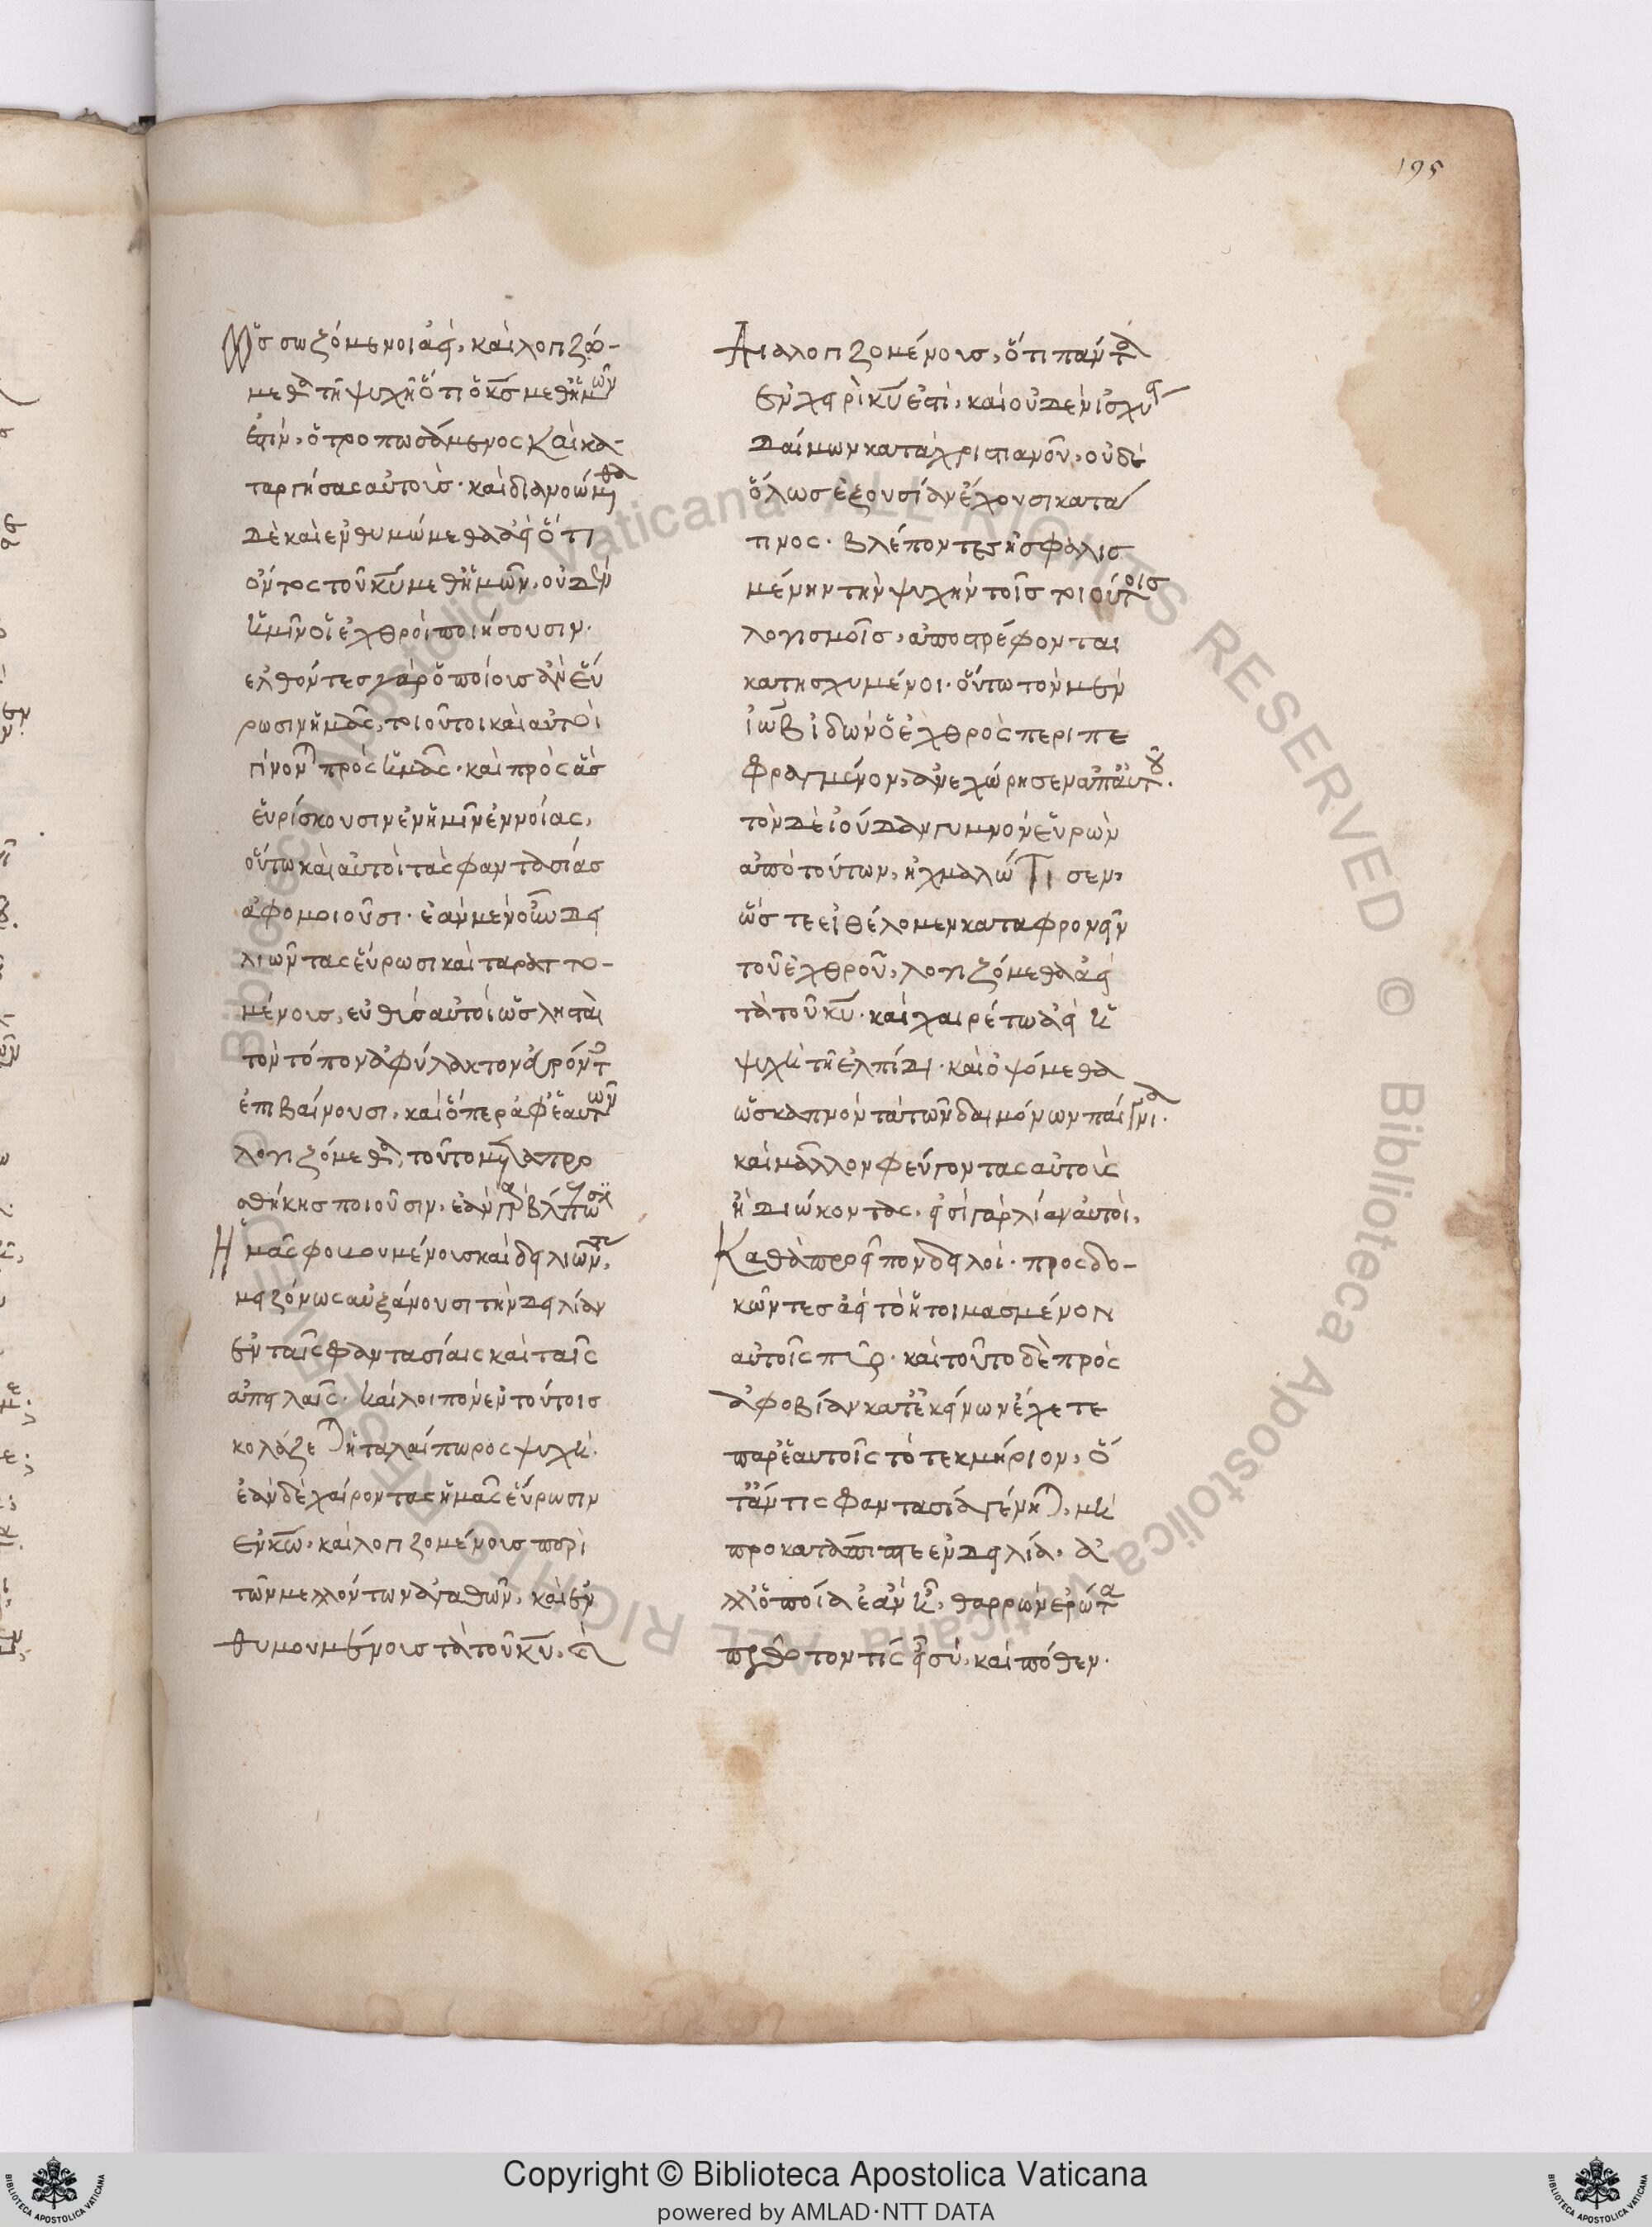 195
Ὡς σωζόμενοι ἀεὶ, καὶ λογιζώ-
μεθα τῆ ψυχῆ ὅτι ὁ κς μεθ' ἡμῶν
ἐστὶν, ὁ τροπωσάμενος καὶ κα-
ταργήσας αὐτοὺς. καὶ διανοώμεθα
δὲ καὶ ἐνθυμώμεθα ἀεὶ ὅτι
ὄντος τοῦ κυ μεθ' ἡμῶν, οὐδὲν
ἡμῖν οἱ ἐχθροὶ ποιήσουσιν.
ἐλθόντες γὰρ ὁποίους ἂν εὕ
ρωσιν ἡμᾶς, τοιοῦτοι καὶ αὐτοὶ
γίνονται πρὸς ἡμᾶς. καὶ πρὸς ἃς
εὑρίσκουσιν ἐν ἡμῖν ἐννοίας,
οὕτω καὶ αὐτοὶ τὰς φαντασίας
ἀφομοιοῦσι. ἐὰν μὲν οὖν δει
λιῶντας εὕρωσι καὶ ταραττο-
μένους, εὐθὺς αὐτοὶ ὡς λησταὶ
τὸν τόπον ἀφύλακτον εὑρόντες
ἐπιβαίνουσι, καὶ ὅπερ ἀφ' ἑαυτῶν
λογιζόμεθα, τοῦτο μετὰ προ
σθήκης ποιοῦσιν. ἐὰν γὰρ βλέπωσιν
Ἡμᾶς φοβουμένους καὶ δειλιῶντας,
μειζόνως αὐξάνουσι τὴν δειλίαν
ἐν ταῖς φαντασίαις καὶ ταῖς
ἀπειλαῖς. καὶ λοιπὸν ἐν τούτοις
κολάζεται ἡ ταλαίπωρος ψυχὴ.
ἐὰν δὲ χαίροντας ἡμᾶς εὕρωσιν
ἐν κω. καὶ λογιζομένους περὶ
τῶν μελλόντων ἀγαθῶν, καὶ ἐν
θυμουμένους τὰ τοῦ κυ, καὶ
Διαλογιζομένους, ὅτι πάντα
ἐν χειρὶ κυ ἐστὶ, καὶ οὐδὲν ἰσχύει
δαίμων κατὰ χριστιανοῦ, οὐδὲ
ὅλως ἐξουσίαν ἔχουσι κατά
τινος. βλέποντες ἠσφαλισ
μένην τὴν ψυχὴν τοῖς τοιούτοις
λογισμοῖς, ἀποστρέφονται
κατησχυμένοι. οὕτω τὸν μὲν
ἰὼβ ἰδὼν ὁ ἐχθρὸς περιπε
φραγμένον, ἀνεχώρησεν ἀπ' αὐτοῦ.
τὸν δὲ ἰούδαν γυμνὸν εὑρὼν
ἀπὸ τούτων, ἠχμαλώτισεν,
ὥστε εἰ θέλομεν καταφρονεῖν
τοῦ ἐχθροῦ, λογιζόμεθα ἀεὶ
τὰ τοῦ κυ. καὶ χαιρέτω ἀεὶ ἡ
ψυχὴ τῆ ἐλπίδι. καὶ ὀψόμεθα
ὡς καπνὸν τὰ τῶν δαιμόνων παίγνια.
καὶ μᾶλλον φεύγοντας αὐτοὺς
ἢ διώκοντας. εἰσὶ γὰρ λίαν αὐτοὶ,
Καθὰ προεῖπον δειλοὶ. προσδο-
κῶντες ἀεὶ τὸ ἡτοιμασμένον
αὐτοῖς πῦρ. καὶ τοῦτο δὲ πρὸς
ἀφοβίαν κατ' ἐκείνων ἔχετε
παρ' ἑαυτοῖς τὸ τεκμήριον, ὅ
τ' ἄν τις φαντασία γένηται, μὴ
προκατάπιπτε ἐν δειλία, ἀ
λλ' ὁποία ἐὰν ἦ, θαρρῶν ἐρώτα
πρῶτον τίς εἶ σύ, καὶ πόθεν.
Copyright © Biblioteca Apostolica Vaticana
powered by AMLAD·NTT DATA